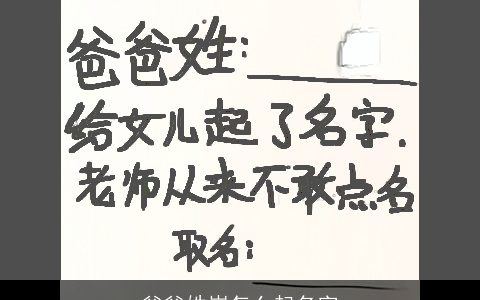 爸爸姓:
给女儿起了名字.
老师从来不敢点名
取名: